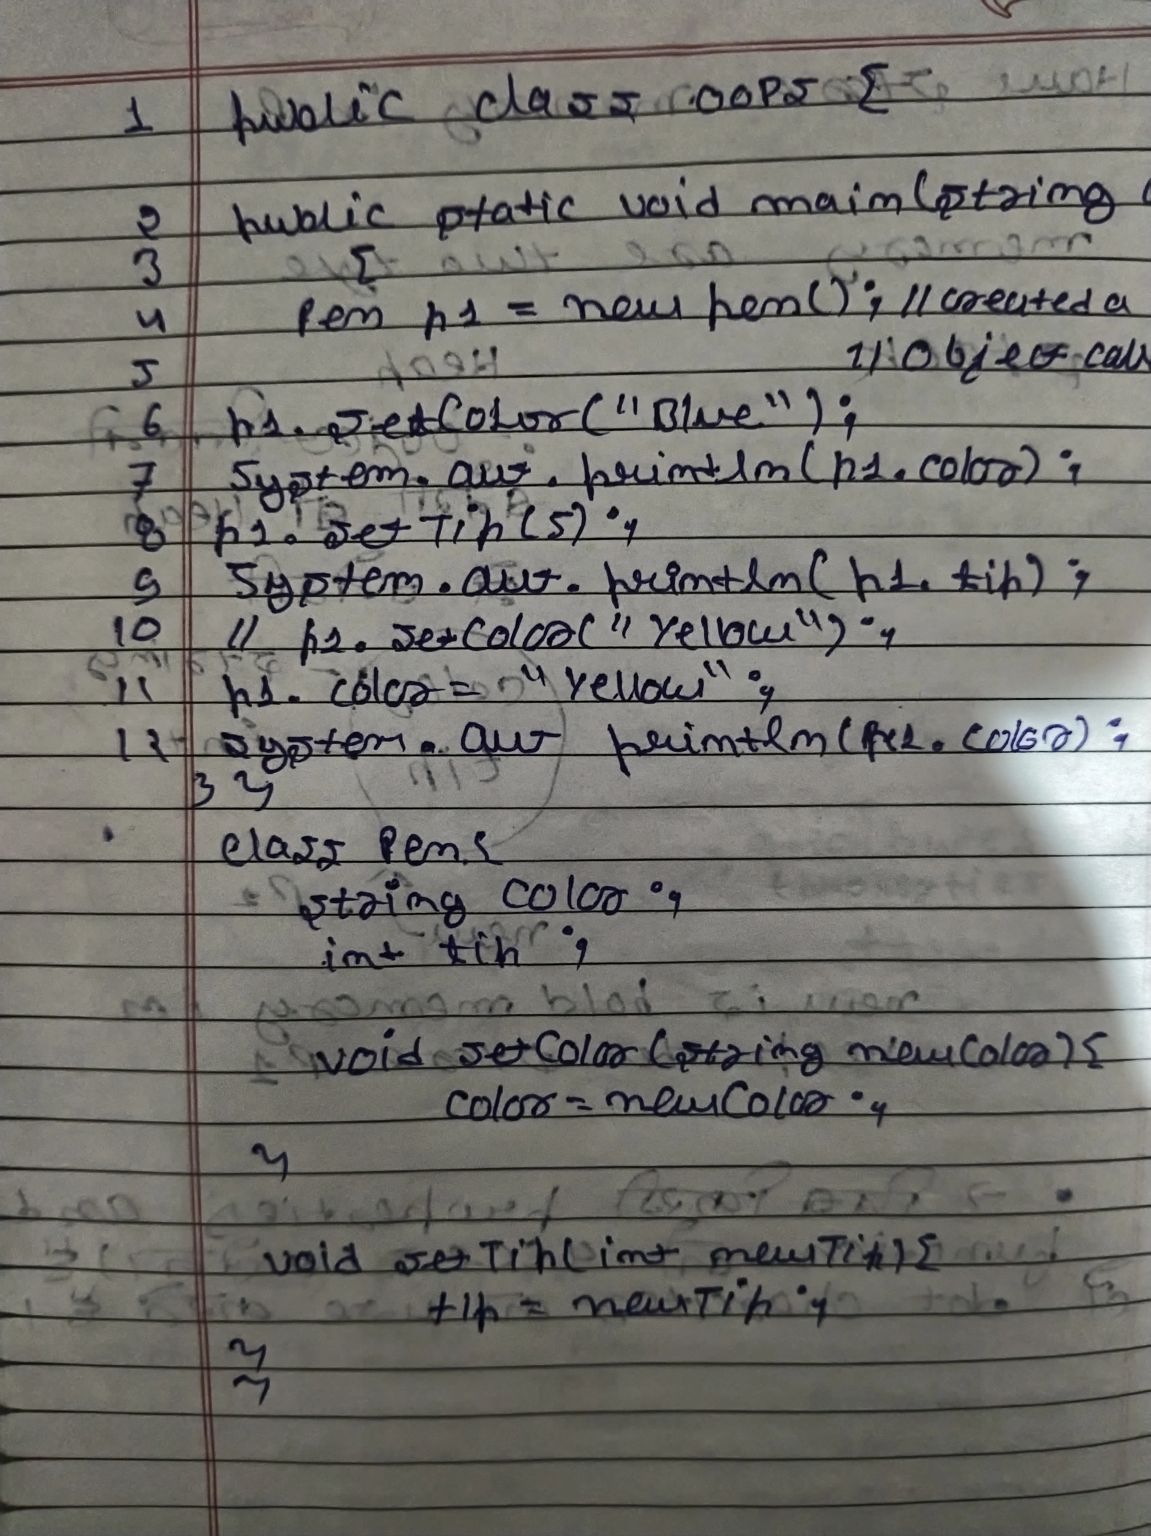 1 public class OOPS {
2 public static void main(string
3 {
4 Pen p1 = new pen(); // created a
5 // Object call
6 p1. setColor("Blue");
7 System. out. println(p1.color);
8 p1. set Tip (5);
9 System. out. println( p1. tip);
10 // p1. setColor(" Yellow");
11 p1. color = "Yellow";
12 system. out println(p1. color);
3 }
class Pen {
string color ;
int tip ;
void setColor (string newColor) {
color = newColor ;
}
void set Tip( int newTip) {
tip = newTip ;
}
}